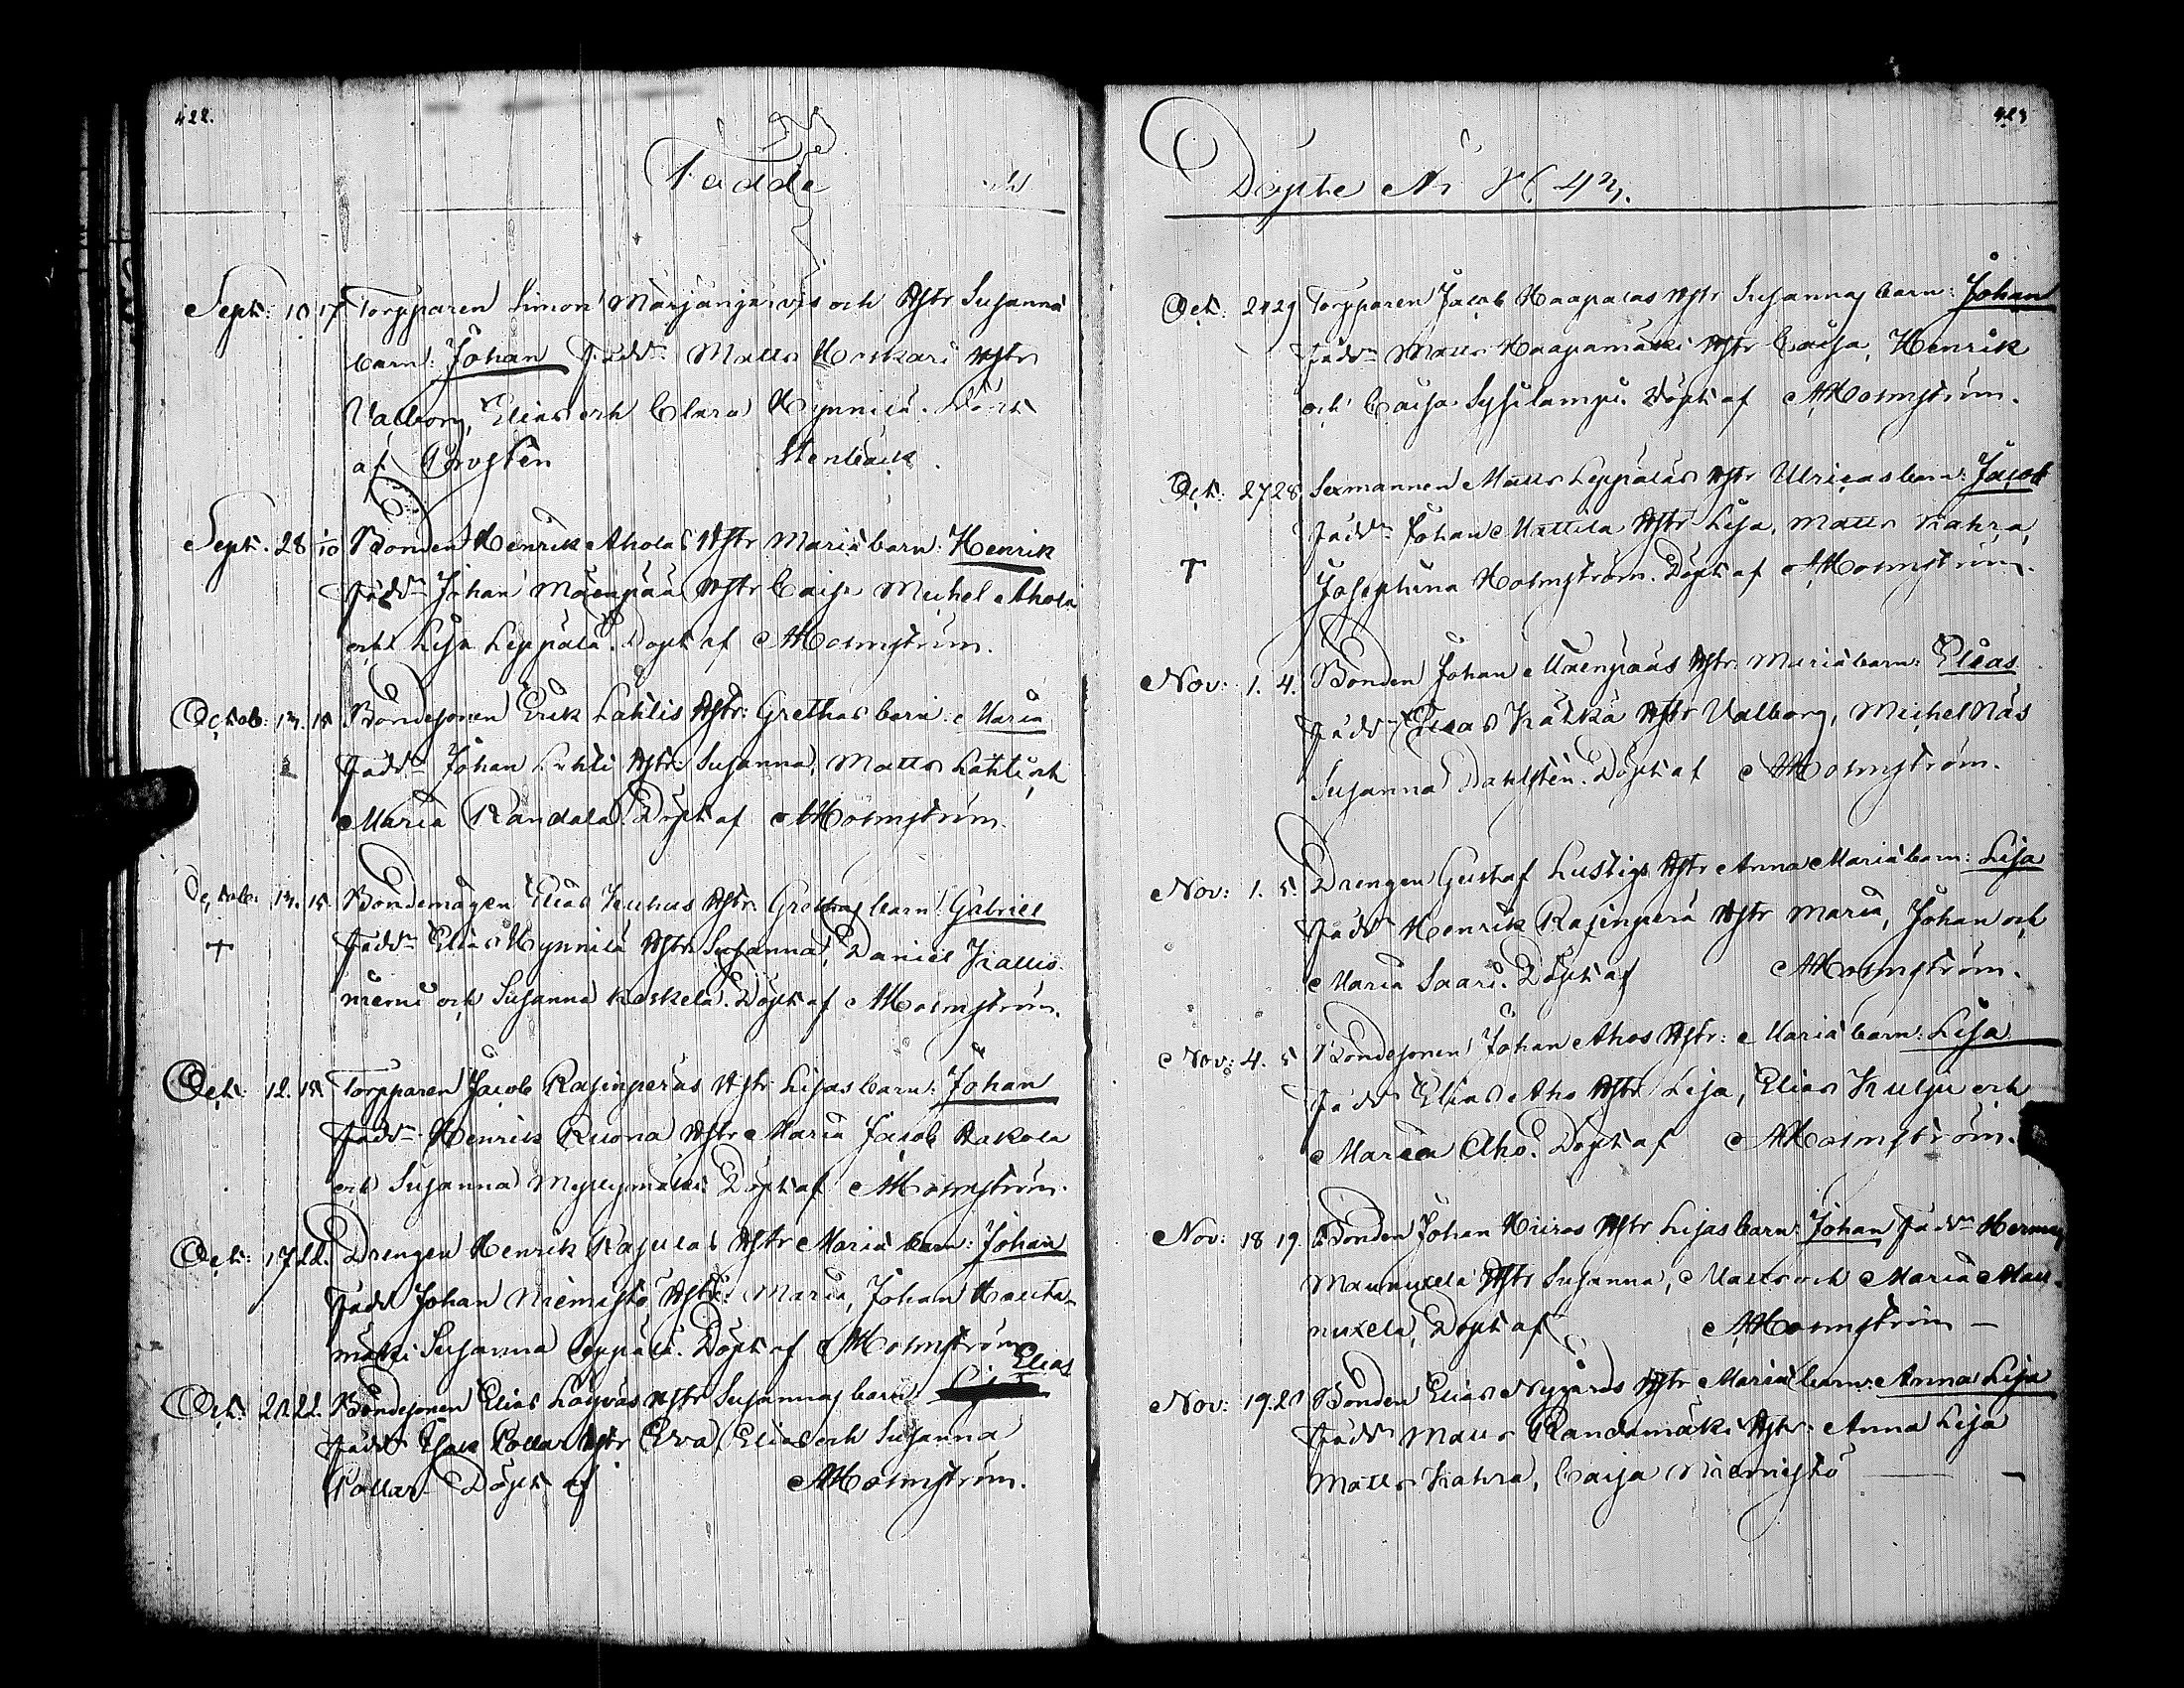 422.
Födde och
Sept: 10 17 Torpparen Simon Marjanjärvis och Hstr Susannas
barn: Johan Fadd: Matts Koskari Hstr
Valborg, Elias och Clara Hynnilä. Döpt
af Prosten Stenbäck.
Sept. 28 1/10 Bonden Henrik Aholas Hstr Mariæ barn: Henrik
Fadd: Johan Mäenpää Hstr Caisa Michel Ahola
och Lisa Leppälä. Döpt af AHolmström.
Octob. 13. 15 Bondesonen Erik Lahtis Hstr: Grethas barn: Maria
Fadd: Johan Lahti Hstr: Susanna, Matts Lahti och
Maria Randala. Döpt af AHolmström.
Octob. 13. 15. Bondemågen Elias Huhus Hstr: Grethas barn: Gabriel
† Fadd: Elias Hynnilä Hstr Susanna, Daniel Kallio
niemi och Susanna Koskela. Döpt af AHolmström.
Oct: 12. 15. Torpparen Jacob Rasinperäs Hstr: Lisas barn: Johan
Fadd: Henrik Ruona Hstr Maria Jacob Kakola
och Susanna Myllymäki. Döpt af AHolmström.
Oct: 17 22. Drengen Henrik Rasulas Hstr Mariæ barn: Johan
Fadd: Johan Niemistö Hstr: Maria, Johan Hauta-
mäki Susanna Leppälä. Döpt af AHolmström
Elias
Oct: 21 22. Bondesonen Elias Löyväs Hstr Susannas barn:
Fadd: Isak Pollar Hstr Eva, Elias och Susanna
Pollar. Döpt af AHolmström.
423
Döpte År 1843.
Oct: 24 29 Torpparen Jacob Haapalas Hstr Susannas barn: Johan
Fadd: Matts Haapamäki Hstr Caisa, Henrik
och Caisa Sysilampi. Döpt af AHolmström.
Oct: 27 28 Sexmannen Matts Leppäläs Hstr Ulricas barn: Jacob
Fadd: Johan Mattila Hstr Lisa, Matts Kahra,
† Josephina Holmström. Döpt af AHolmström.
Nov: 1. 4. Bonden Johan Mäenpääs Hstr: Mariæ barn: Elias
Fadd: Elias Kätkä Hstr Valborg, Michel Näs
Susanna Dahlsten. Döpt af AHolmström.
Nov: 1. 5. Drengen Gustaf Lustigs Hstr Anna Mariæ barn: Lisa
Fadd: Henrik Rasinperä Hstr Maria, Johan och
Maria Saari. Döpt af AHolmström.
Nov: 4. 5 Bondesonen Johan Ahos Hstr: Mariæ barn: Lisa
Fadd: Elias Aho Hstr Lisa, Elias Kulju och
Maria Aho. Döpt af AHolmström.
Nov: 18 19. Bonden Johan Hiiros Hstr Lisas barn: Johan Fadd: Herman
Maunuxela Hstr Susanna, Matts och Maria Mau-
nuxela, Döpt af AHolmström —
Nov: 19. 20 Bonden Elias Nygårds Hstr Mariæ barn: Anna Lisa
Fadd: Matts Randamäki Hstr: Anna Lisa
Matts Kahra, Caisa Niemistö — —